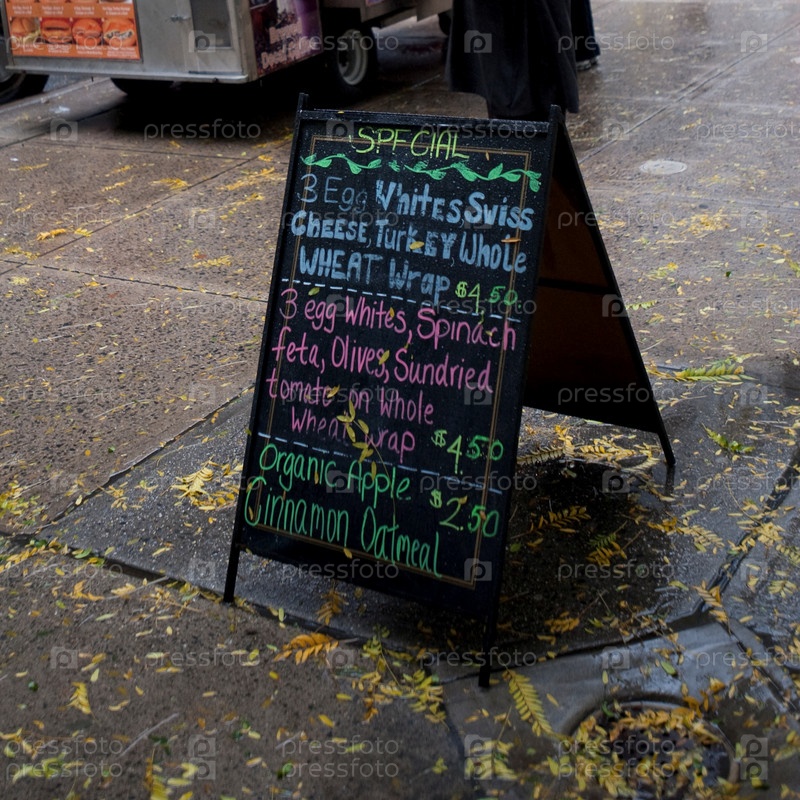 SPECIAL
3 Egg Whites, Swiss
Cheese, Turkey, Whole
WHEAT Wrap $4.50
3 egg Whites, Spinach
feta, Olives, Sundried
tomate on Whole
Wheat wrap $4.50
Organic Apple
Cinnamon Oatmeal $2.50